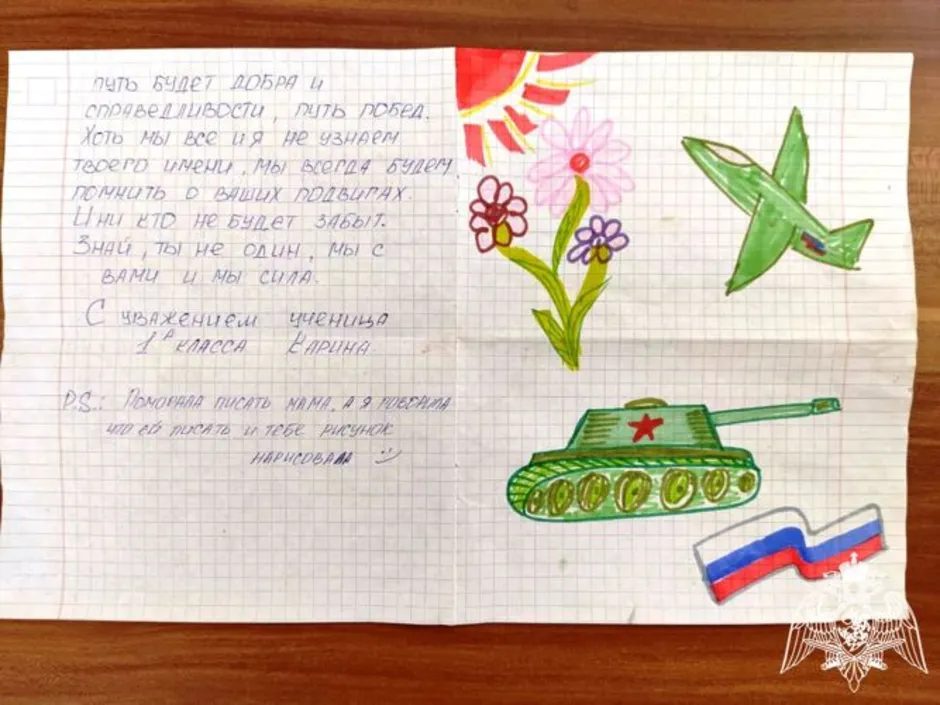 ПУТЬ БУДЕТ ДОБРА И
СПРАВЕДЛИВОСТИ, ПУТЬ ПОБЕД.
ХОТЬ МЫ ВСЕ И Я НЕ УЗНАЕМ
ТВОЕГО ИМЕНИ, МЫ ВСЕГДА БУДЕМ
ПОМНИТЬ О ВАШИХ ПОДВИГАХ.
И НИ КТО НЕ БУДЕТ ЗАБЫТ.
ЗНАЙ, ТЫ НЕ ОДИН, МЫ С
ВАМИ И МЫ СИЛА.
С УВАЖЕНИЕМ УЧЕНИЦА
КЛАССА КАРИНА.
P.S.: ПОМОГАЛА ПИСАТЬ МАМА, А Я ГОВОРИЛА
ЧТО ЕЙ ПИСАТЬ И ТЕБЕ РИСУНОК
НАРИСОВАЛА :)